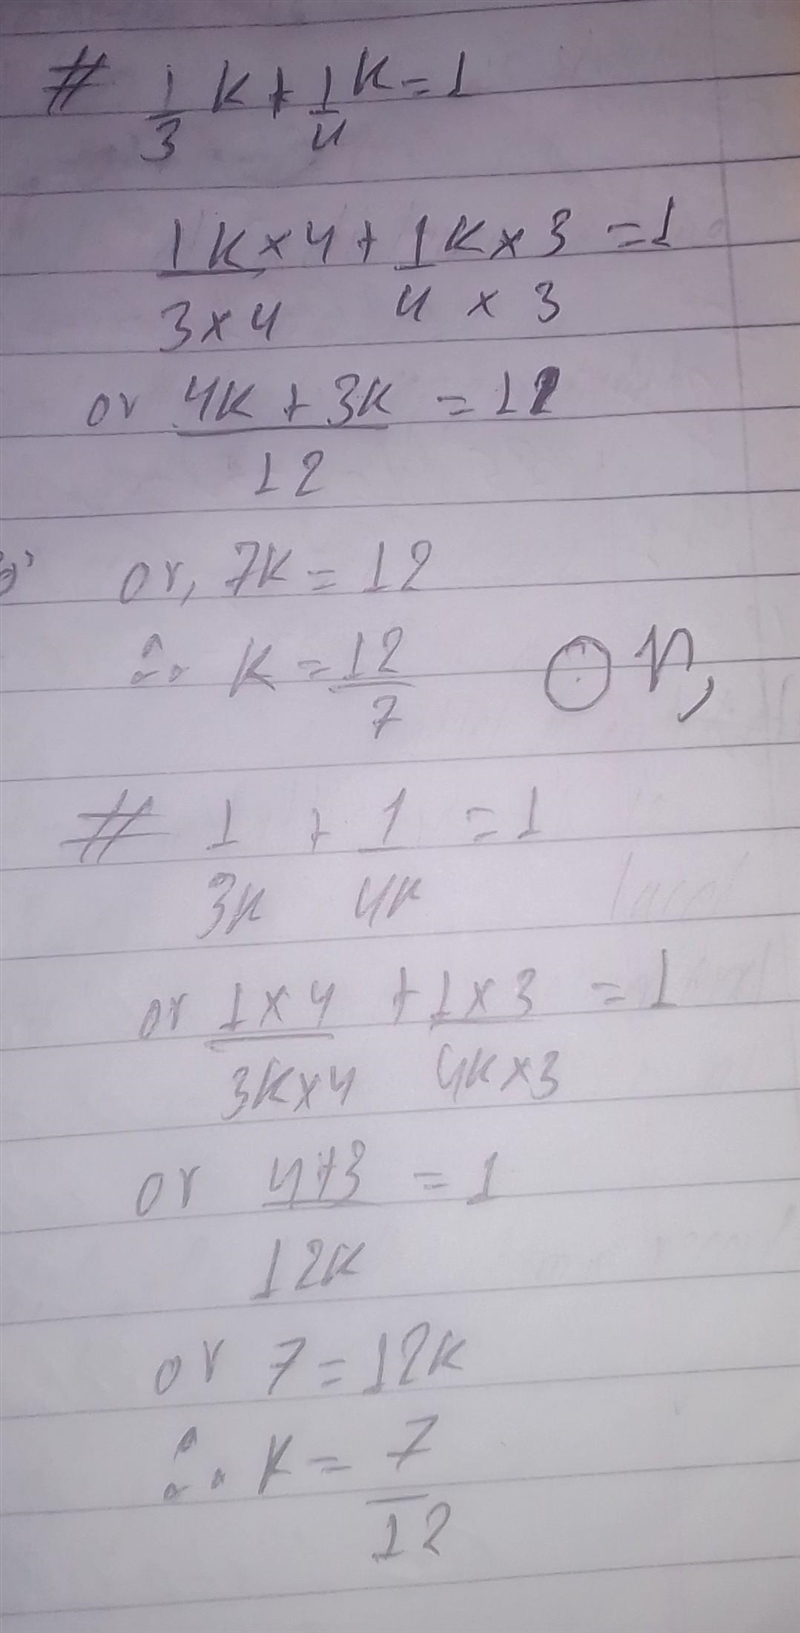 # 1/3 k + 1/4 k = 1
1k×4/3×4 + 1k×3/4×3 = 1
or 4k + 3k/12 = 1
or, 7k = 12
∴ k = 12/7
# 1/3k + 1/4k = 1
or 1×4/3k×4 + 1×3/4k×3 = 1
or 4+3/12k = 1
or 7 = 12k
∴ k = 7/12